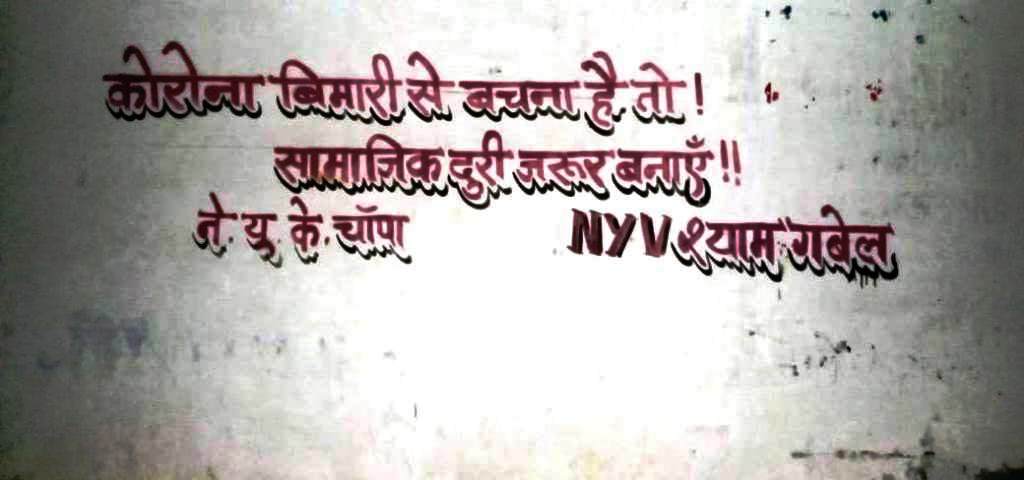 कोरोना बिमारी से बचना है. तो !
सामाजिक दुरी जरूर बनाएँ !!
ने. यु. के. चॉपा NYV श्याम गबेल